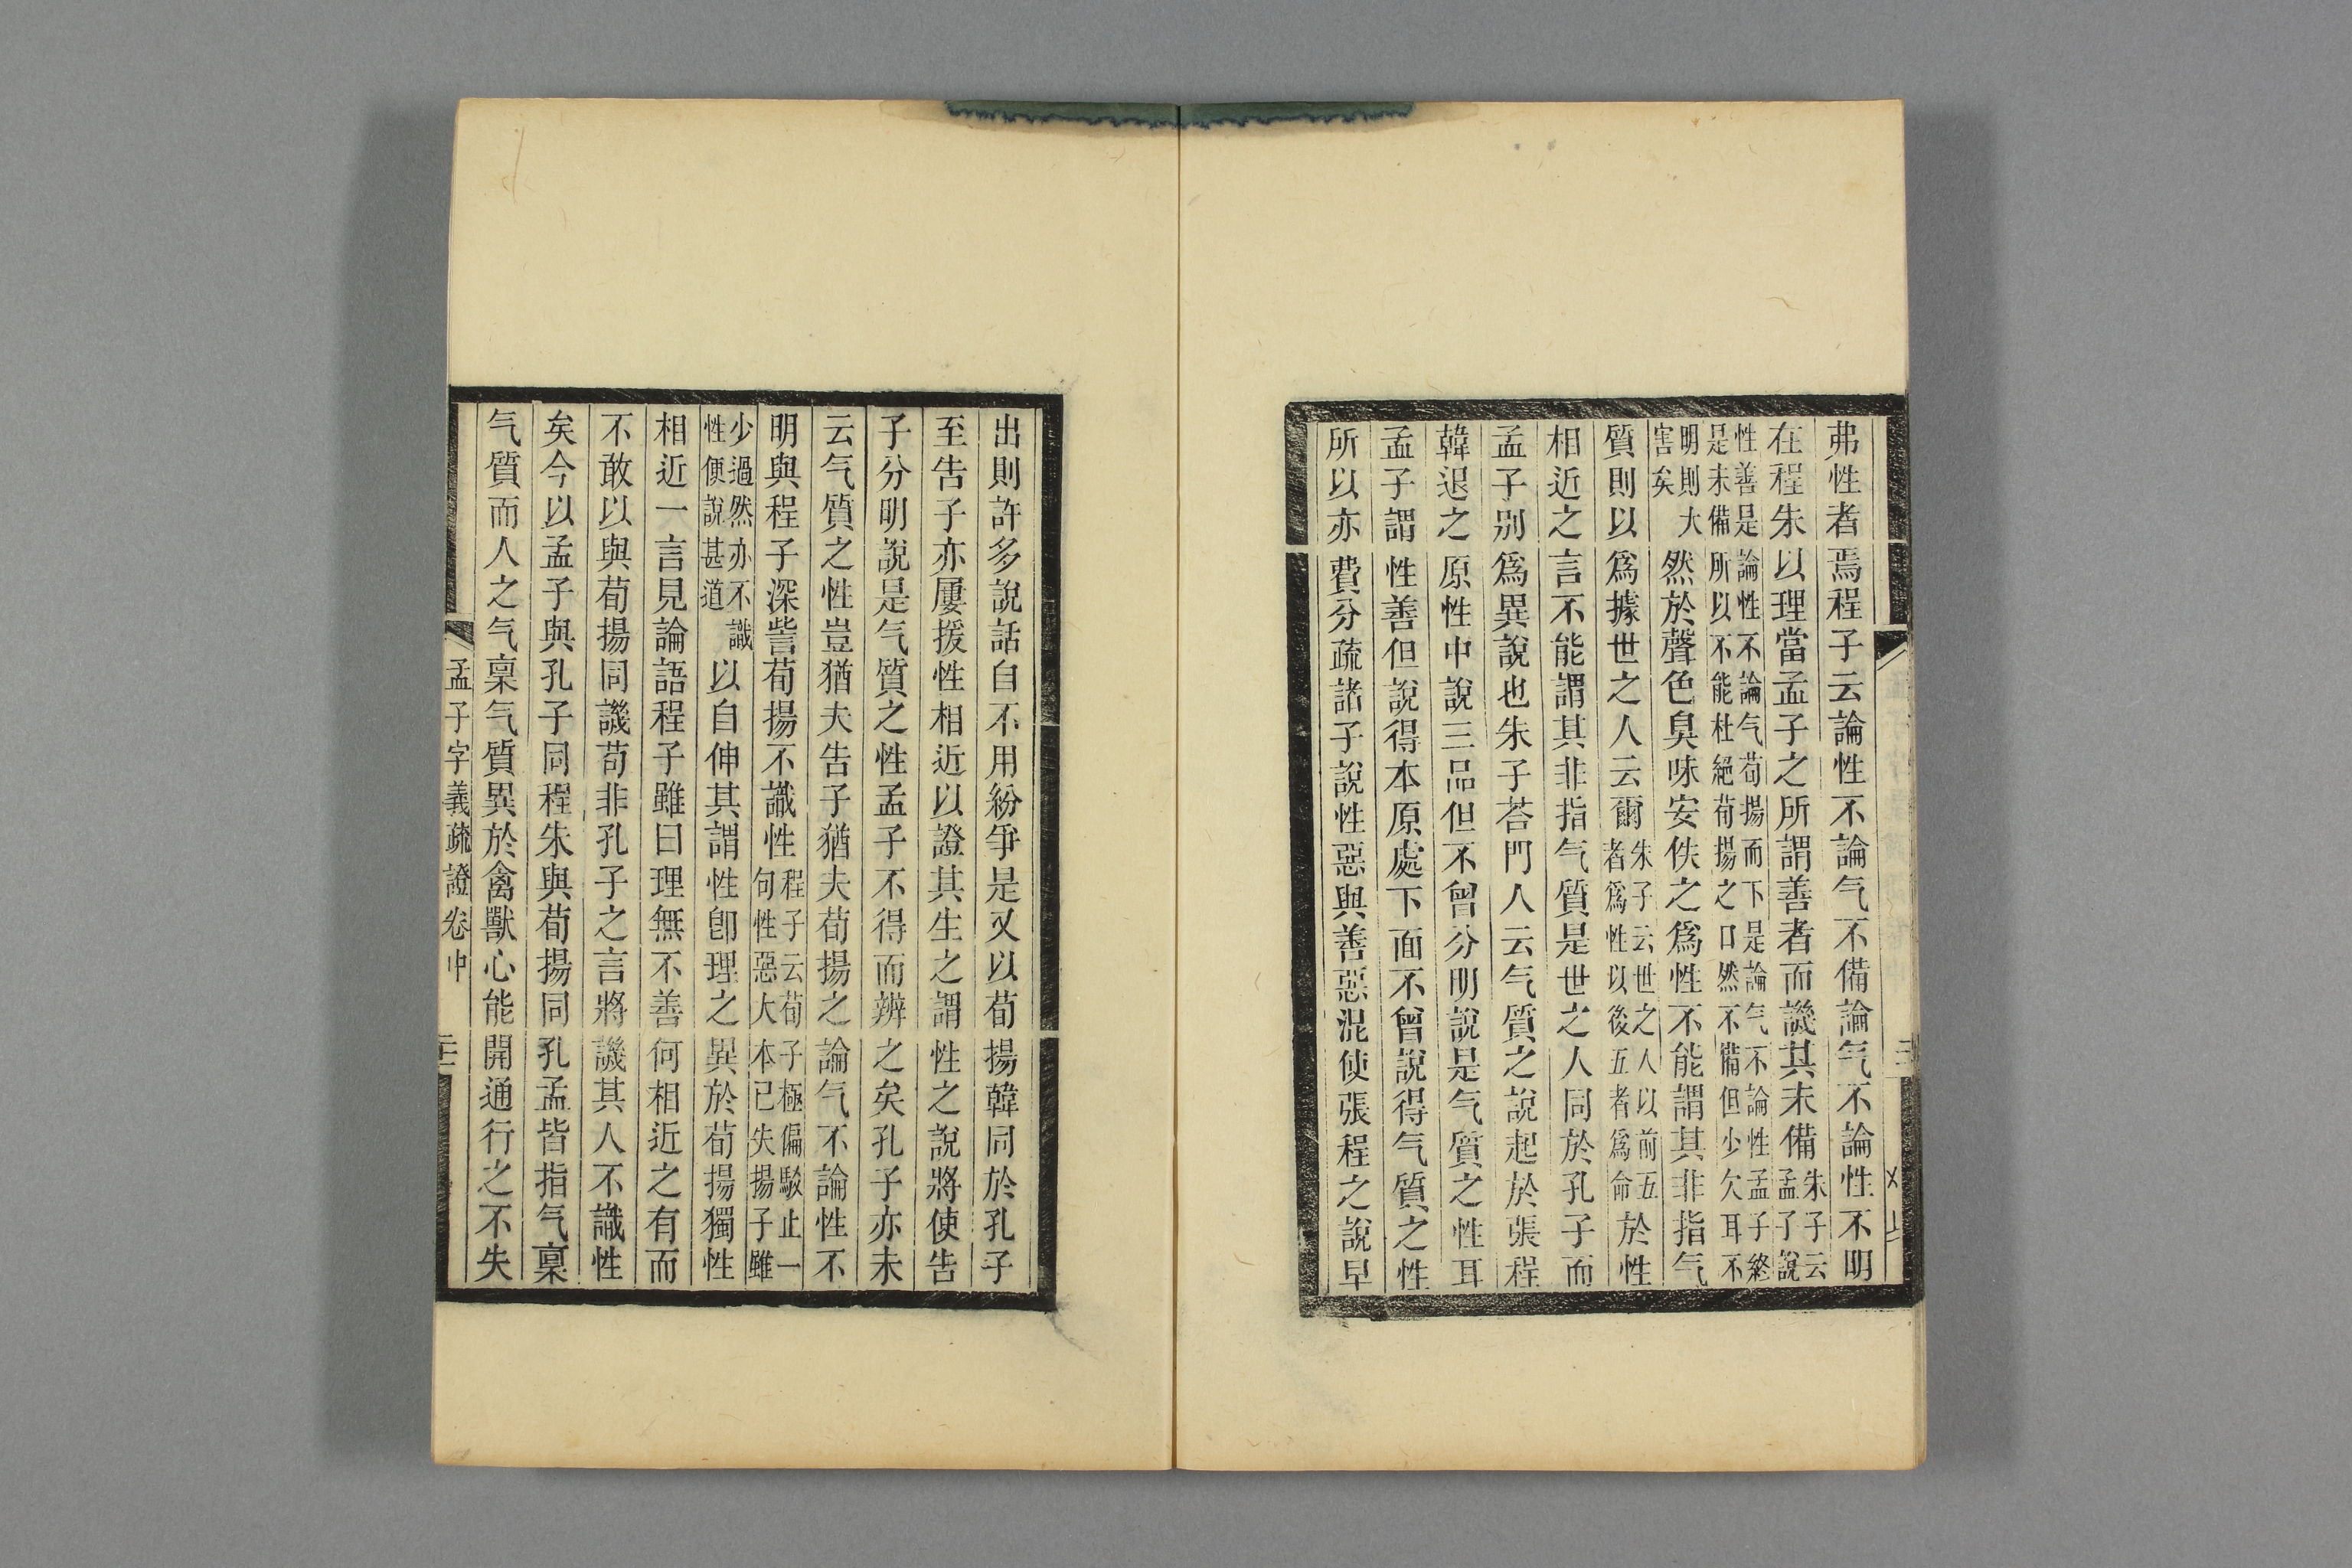 弗性者焉程子云論性不論气不備論气不論性不明
在程朱以理當孟子之所謂善者而譏其未備朱子云孟子說
性善是論性不論气荀揚而下是論气不論性孟子終
是未備所以不能杜絕荀揚之口然不備但少欠耳不
明則大害矣然於聲色臭味安佚之爲性不能謂其非指气
質則以爲據世之人云爾朱子云世之人以前五者爲性以後五者爲命於性
相近之言不能謂其非指气質是世之人同於孔子而
孟子别爲異說也朱子荅門人云气質之說起於張程
韓退之原性中說三品但不曾分明說是气質之性耳
孟子謂性善但說得本原處下面不曾說得气質之性
所以亦費分疏諸子說性惡與善惡混使張程之說早
出則許多說話自不用紛爭是又以荀揚韓同於孔子
至告子亦屢援性相近以證其生之謂性之說將使告
子分明說是气質之性孟子不得而辨之矣孔子亦未
云气質之性豈猶夫告子猶夫荀揚之論气不論性不
明與程子深訾荀揚不識性程子云荀子極偏駁止一句性惡大本已失揚子雖
少過然亦不識性便說甚道以自伸其謂性卽理之異於荀揚獨性
相近一言見論語程子雖曰理無不善何相近之有而
不敢以與荀揚同譏苟非孔子之言將譏其人不識性
矣今以孟子與孔子同程朱與荀揚同孔孟皆指气稟
气質而人之气稟气質異於禽獸心能開通行之不失
孟子字義疏證卷中